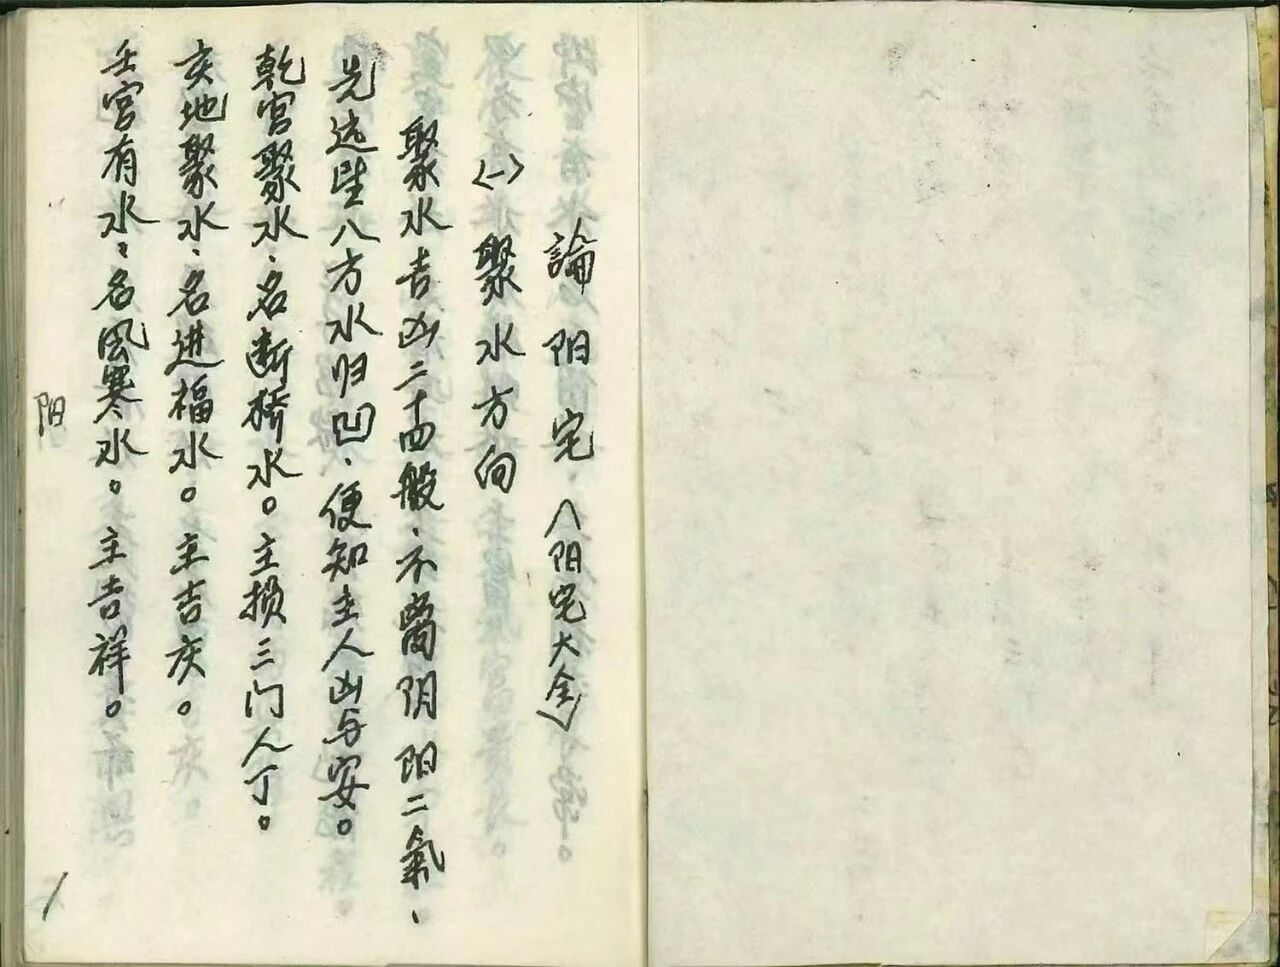 論阳宅·〈阳宅大全〉
〈一〉聚水方向
聚水吉凶二十四般、不离阴阳二氣、
先远望八方水归凹、便知主人凶与安。
乾宫聚水、名断桥水。主损三门人丁。
亥地聚水、名进福水。主吉庆。
壬宫有水、名风寒水。主吉祥。
阳
1